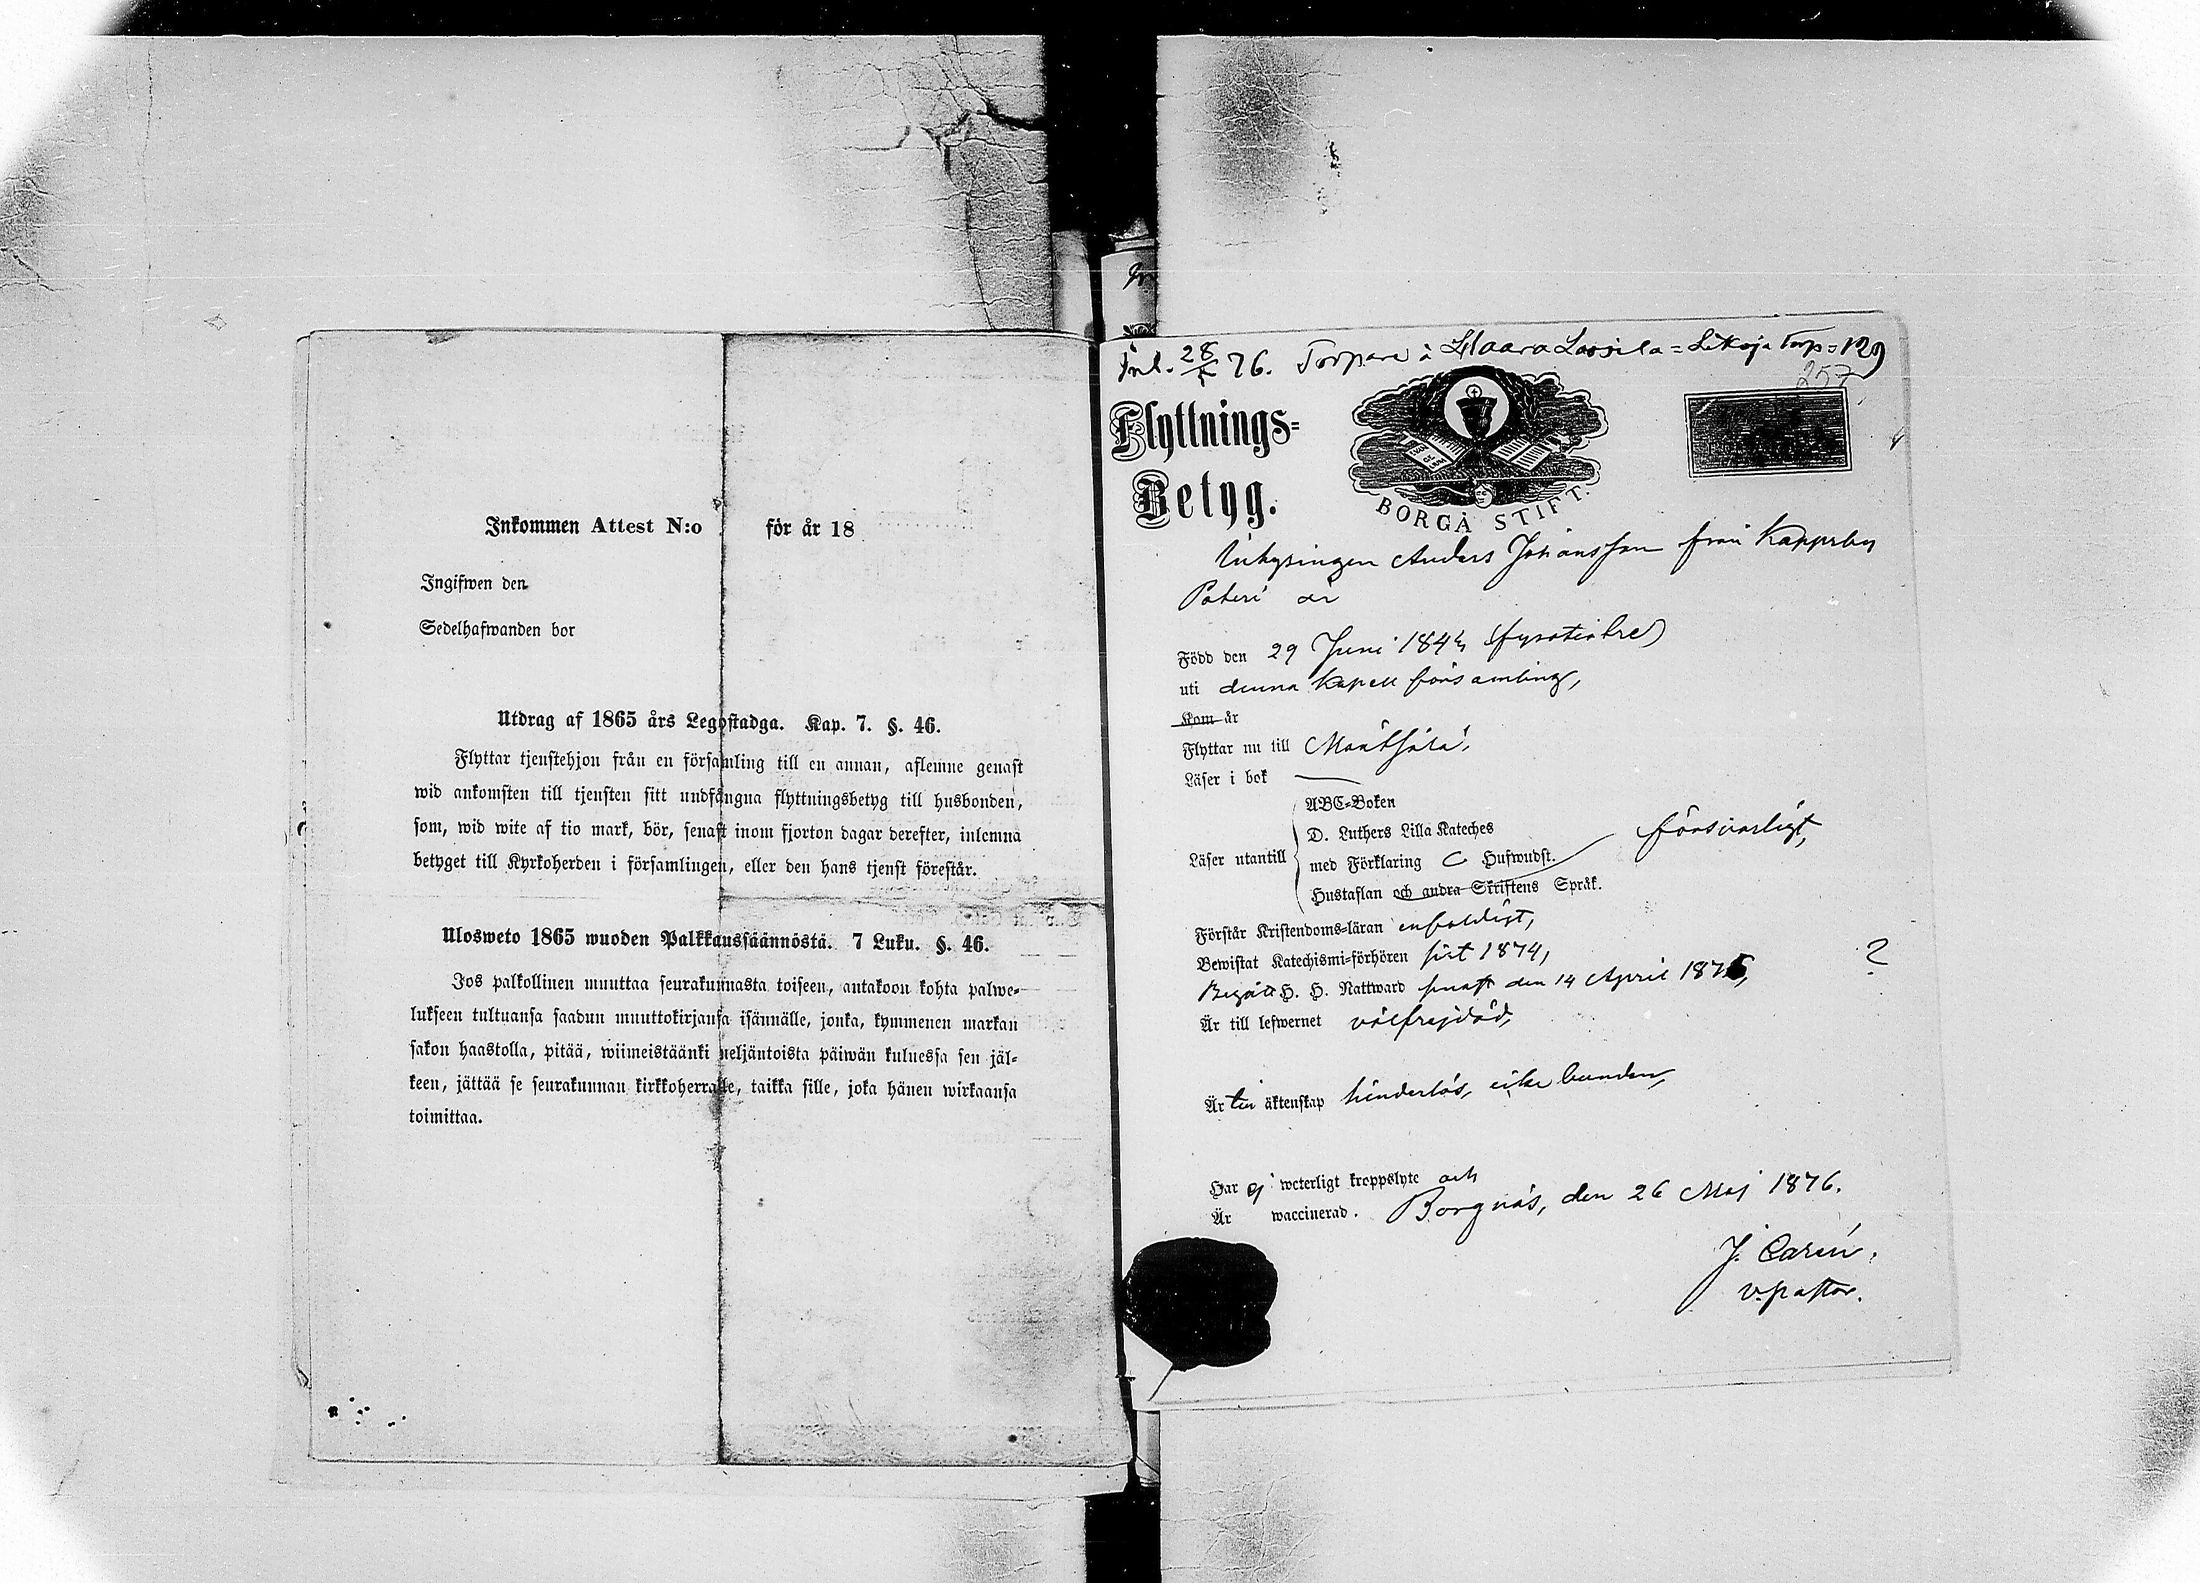 Inkommen Attest N:o för år 18
Ingifwen den
Sedelhafwanden bor
Utdrag af 1865 års Legostadga. Kap. 7. §. 46.
Flyttar tjenstehjon från en församling till en annan, aflemne genast
wid ankomsten till tjensten sitt undfångna flyttningsbetyg till husbonden,
som, wid wite af tio mark, bör, senast inom fjorton dagar derefter, inlemna
betyget till Kyrkoherden i församlingen, eller den hans tjenst förestår.
Ulosweto 1865 wuoden Palkkaussäännöstä. 7 Luku. §. 46.
Jos palkollinen muuttaa seurakunnasta toiseen, antakoon kohta palwe-
lukseen tultuansa saadun muuttokirjansa isännälle, jonka, kymmenen markan
sakon haastolla, pitää, wiimeistäänki neljäntoista päiwän kuluessa sen jäl-
keen, jättää se seurakunnan kirkkoherralle, taikka sille, joka hänen wirkaansa
toimittaa.
Inl. 28/5 76. Torpare å Lassila = torp = 129
257
Flyttnings-
Betyg.
BORGÅ STIFT.
Inhysingen Anders Johansson från Kappeby
är
Född den 29 Juni 1844 (fyratiofyra)
uti denna Kapell församling,
Kom år
Flyttar nu till Mäntsälä.
Läser i bok —
ABC-Boken
D. Luthers Lilla Kateches
Läser utantill med Förklaring Hufwudst. försvarligt,
Hustaflan och andra Skriftens Språk.
Förstår Kristendoms-läran enfaldigt,
Bewistat Katechismi-förhören sist 1874,
Begått H. H. Nattward senast den 14 April 1876, ?
Är till lefwernet välfrejdad,
Är till äktenskap hinderlös, icke bunden,
Har ej weterligt kroppslyte och
Är waccinerad. Borgnäs, den 26 Maj 1876.
J. Carén.
v.pastor.